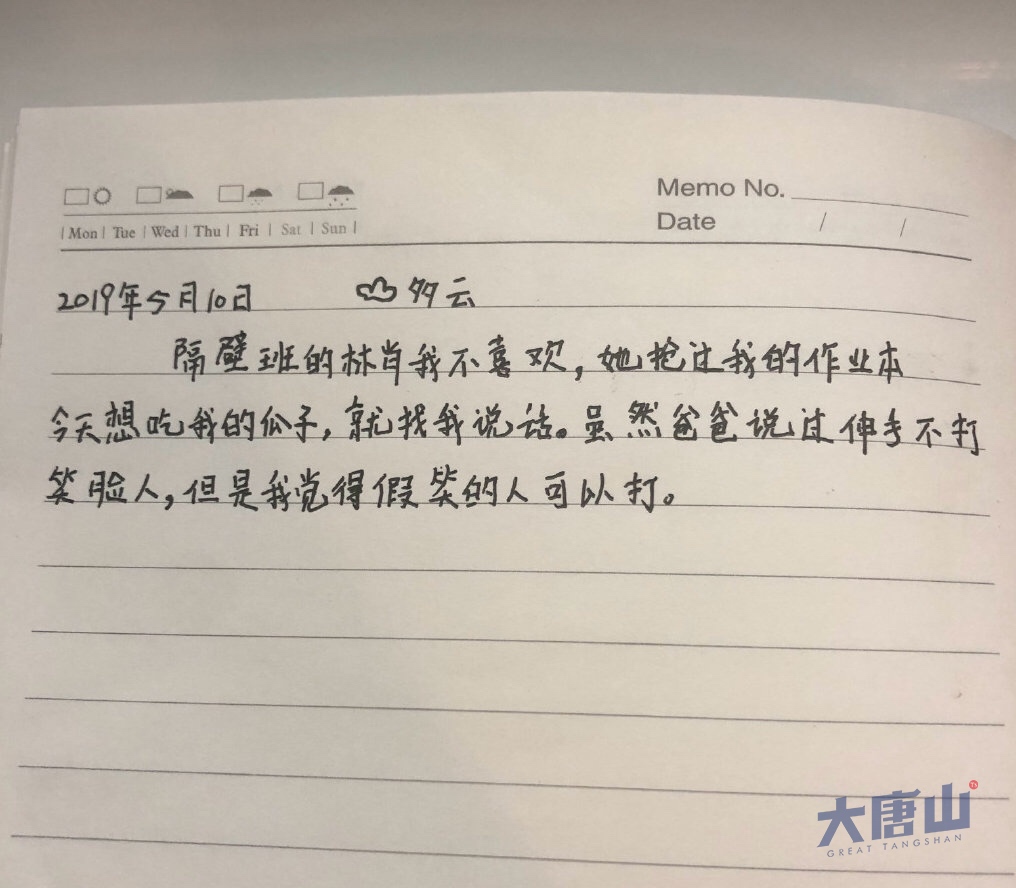 Memo No.
Mon Tue Wed Thu Fri Sat Sun
Date / /
2019年5月10日 多云
隔壁班的林肖我不喜欢，她抢过我的作业本
今天想吃我的瓜子，就找我说话。虽然爸爸说过伸手不打
笑脸人，但是我觉得假笑的人可以打。
大唐山
GREAT TANGSHAN